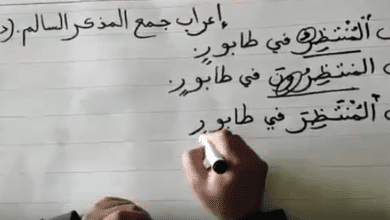 إعراب جمع المذكر السالم.
المُنْتَظِرُ في طابورٍ.
المنتظِرُونَ في طابورٍ.
المُنْتَظِرَ في طابور